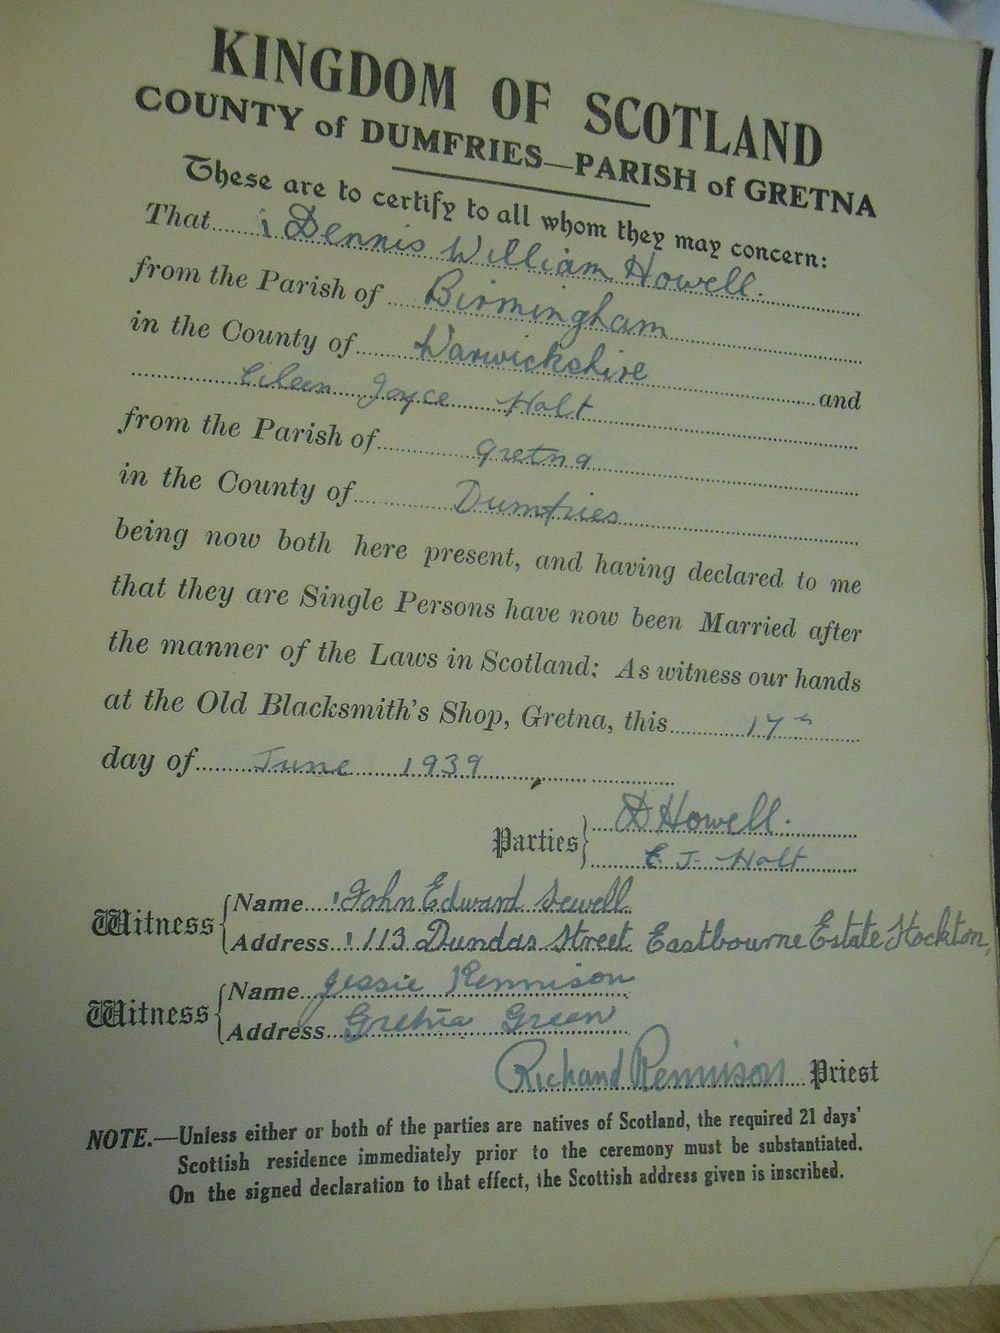 KINGDOM OF SCOTLAND
COUNTY of DUMFRIES—PARISH of GRETNA
These are to certify to all whom they may concern:
That Dennis William Howell.
from the Parish of Birmingham
in the County of Warwickshire and
Eileen Joyce Holt
from the Parish of Gretna
in the County of Dumfries
being now both here present, and having declared to me
that they are Single Persons have now been Married after
the manner of the Laws in Scotland: As witness our hands
at the Old Blacksmith's Shop, Gretna, this 17th
day of June 1939
Parties D Howell.
E. J. Holt
Witness Name John Edward Sewell
Address 113 Dundas Street Eastbourne Estate Stockton,
Witness Name Jessie Rennison
Address Gretna Green
Richard Rennison Priest
NOTE.—Unless either or both of the parties are natives of Scotland, the required 21 days'
Scottish residence immediately prior to the ceremony must be substantiated.
On the signed declaration to that effect, the Scottish address given is inscribed.